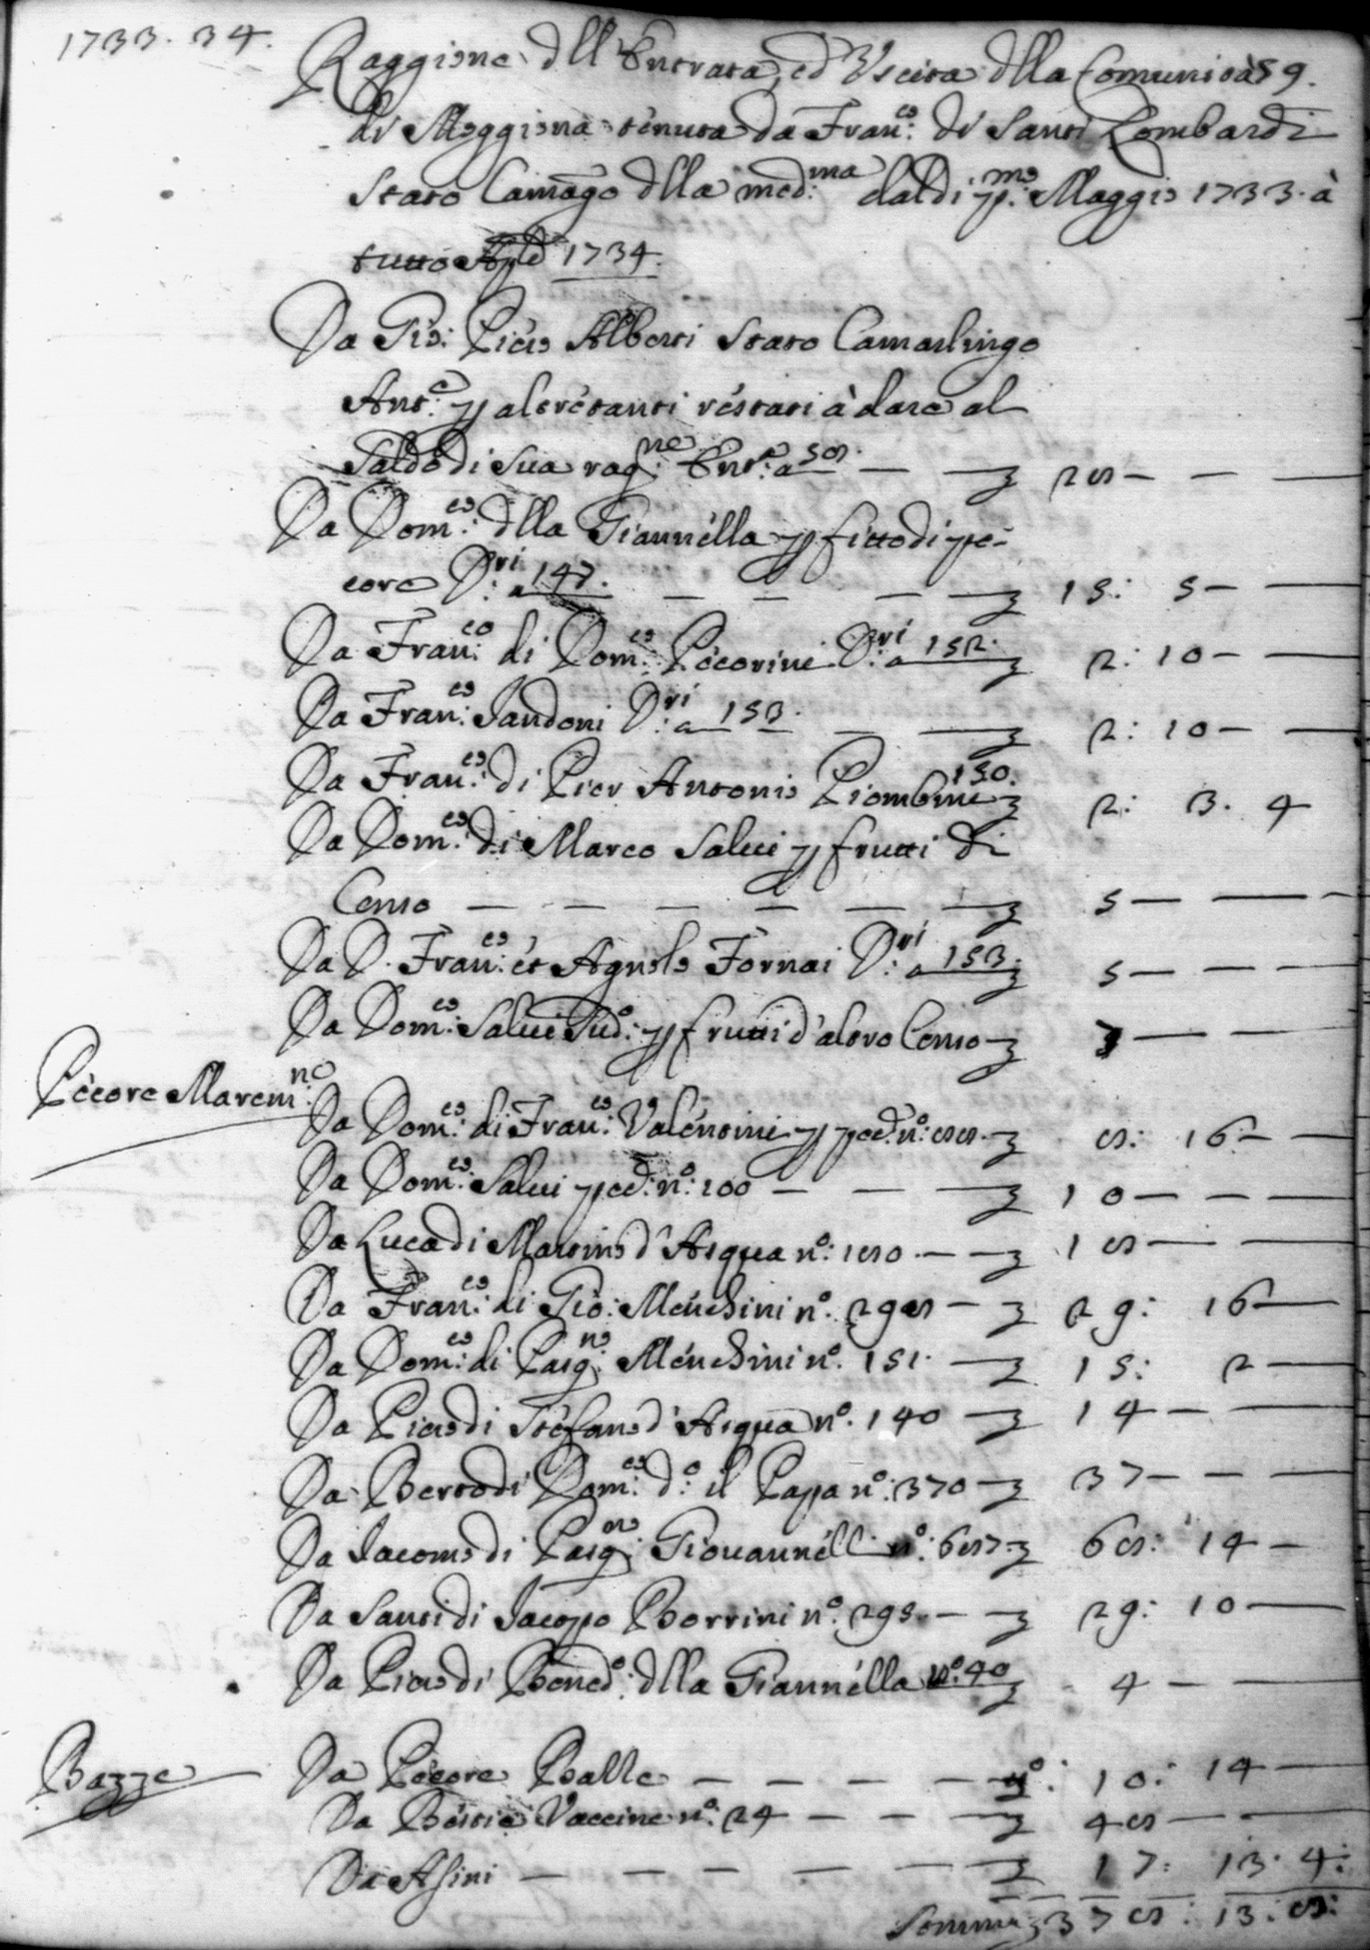 1733. 34.
Raggione dll' Entrata, ed Uscita dlla Comunità 59.
di Moggiona tenuta da Fran:co di Santi Lombardi
stato Camar:go dlla med:ma dal di p:mo Maggio 1733. à
tutto Aple 1734.
Da Gio: Piero Alberti stato Camarlingo
Ant:e p altretanti restati à dare al
Saldo di sua rag:ne Ent:a a 58. — — 28 — — —
Da Dom:co dlla Giannella p fitto di pe-
core D:ri a 147. — — — — 15: 5 — —
Da Fran:co di Dom:co Pecorini D:ri a 152. 2: 10 — —
Da Fran:co Jandoni D:ri a 153. — — 2: 10 — —
Da Fran:co di Pier Antonio Piombini 150. 2: 3. 4
Da Dom:co di Marco Salvi p frutti di
Censo — — — — — — 5 — — —
Da D. Fran:co et Agnolo Fornai D:ri a 153. 5 — — —
Da Dom:co Salvi Sud:o p frutti d'altro Censo — 7 — — —
Pecore Marem:ne
Da Dom:co di Fran:co Valentini p pec:e n:o 88. — 8: 16 — —
Da Dom:co Salvi pec:e n:o 100 — — — 10 — — —
Da Luca di Martino d'Asqua n:o 180 — — 18 — —
Da Fran:co di Gio: Menchini n:o 298 — 29: 16 —
Da Dom:co di Pasq:no Menchini n:o 151. — 15: 2 —
Da Piero di Stefano d'Asqua n:o 140 — 14 — —
Da Berto di Dom:co d:o il Papa n:o 370 — 37 — — —
Da Jacomo di Pasq:no Giovannelli n:o 687 — 68: 14 —
Da Santi di Jacopo Borrini n:o 295 — — 29: 10 —
Da Piero di Bened:o dlla Giannella n:o 40 4 — —
Bazze
Da Pecore Balle — — — — n:o: 10: 14 —
Da Bestie Vaccine n:o 24 — — — 48 — —
Da Asini — — — — — — 17: 13. 4:
Somma 378: 13: 8: